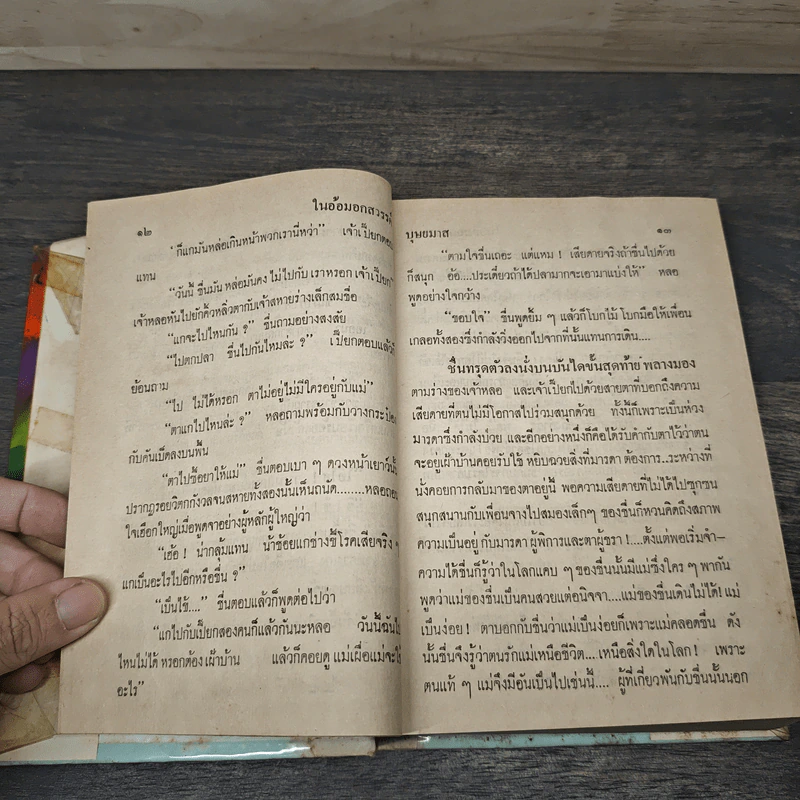 ในอ้อมอกสวรรค์
๑๒
"ก็แกมันหล่อเกินหน้าพวกเรานี่หว่า" เจ้าเปี๊ยกตอบ
แทน
"วันนี้ ชื่นมัน หล่อมันคง ไม่ไปกับ เราหรอก เจ้าเปี๊ยก"
เจ้าหลอหันไปยักคิ้วหลิ่วตากับเจ้าสหายร่างเล็กสมชื่อ
"แกจะไปไหนกัน ?" ชื่นถามอย่างสงสัย
"ไปตกปลา ชื่นไปกันไหมล่ะ ?" เปี๊ยกตอบแล้ว
ย้อนถาม
"ไป ไม่ได้หรอก ตาไม่อยู่ไม่มีใครอยู่กับแม่"
"ตาแกไปไหนล่ะ ?" หลอถามพร้อมกับวางกระป๋อง
กับคันเบ็ดลงบนพื้น
"ตาไปซื้อยาให้แม่" ชื่นตอบเบา ๆ ดวงหน้าเยาว์วันนั้น
ปรากฏรอยวิตกกังวลจนสหายทั้งสองนั้นเห็นถนัด........หลอถอน
ใจเฮือกใหญ่เมื่อพูดจาอย่างผู้หลักผู้ใหญ่ว่า
"เฮ้อ ! น่ากลุ้มแทน น้าช้อยแกช่างขี้โรคเสียจริง ๆ
แกเป็นอะไรไปอีกหรือชื่น ?"
"เป็นไข้...." ชื่นตอบแล้วก็พูดต่อไปว่า
"แกไปกับเปี๊ยกสองคนก็แล้วกันนะหลอ วันนี้ฉันไป
ไหนไม่ได้ หรอกต้อง เฝ้าบ้าน แล้วก็คอยดู แม่เผื่อแม่จะใช้
อะไร"
บุษยมาส
๑๓
"ตามใจชื่นเถอะ แต่แหม ! เสียดายจริงถ้าชื่นไปด้วย
ก็สนุก อ้อ....ประเดี๋ยวถ้าได้ปลามากจะเอามาแบ่งให้" หลอ
พูดอย่างใจกว้าง
"ขอบใจ" ชื่นพูดยิ้ม ๆ แล้วก็โบกไม้ โบกมือให้เพื่อน
เกลอทั้งสองซึ่งกำลังวิ่งออกไปจากที่นั้นแทนการเดิน....
ชื่นทรุดตัวลงนั่งบนบันไดขั้นสุดท้าย พลางมอง
ตามร่างของเจ้าหลอ และเจ้าเปี๊ยกไปด้วยสายตาที่บอกถึงความ
เสียดายที่ตนไม่มีโอกาสไปร่วมสนุกด้วย ทั้งนี้ก็เพราะเป็นห่วง
มารดาซึ่งกำลังป่วย และอีกอย่างหนึ่งก็คือได้รับคำกับตาไว้ว่าตน
จะอยู่เฝ้าบ้านคอยรับใช้ หยิบฉวยสิ่งที่มารดา ต้องการ..ระหว่างที่
นั่งคอยการกลับมาของตาอยู่นี้ พอความเสียดายที่ไม่ได้ไปซุกซน
สนุกสนานกับเพื่อนจางไปสมองเล็กๆ ของชื่นก็หวนคิดถึงสภาพ
ความเป็นอยู่ กับมารดา ผู้พิการและตาผู้ชรา !....ตั้งแต่พอเริ่มจำ-
ความได้ชื่นก็รู้ว่าในโลกแคบ ๆ ของชื่นนั้นมีแม่ซึ่งใคร ๆ พากัน
พูดว่าแม่ของชื่นเป็นคนสวยแต่อนิจจา....แม่ของชื่นเดินไม่ได้! แม่
เป็นง่อย ! ตาบอกกับชื่นว่าแม่เป็นง่อยก็เพราะแม่คลอดชื่น ดัง
นั้นชื่นจึงรู้ว่าตนรักแม่เหนือชีวิต....เหนือสิ่งใดในโลก ! เพราะ
ตนแท้ ๆ แม่จึงมีอันเป็นไปเช่นนี้.... ผู้ที่เกี่ยวพันกับชื่นนั้นนอก